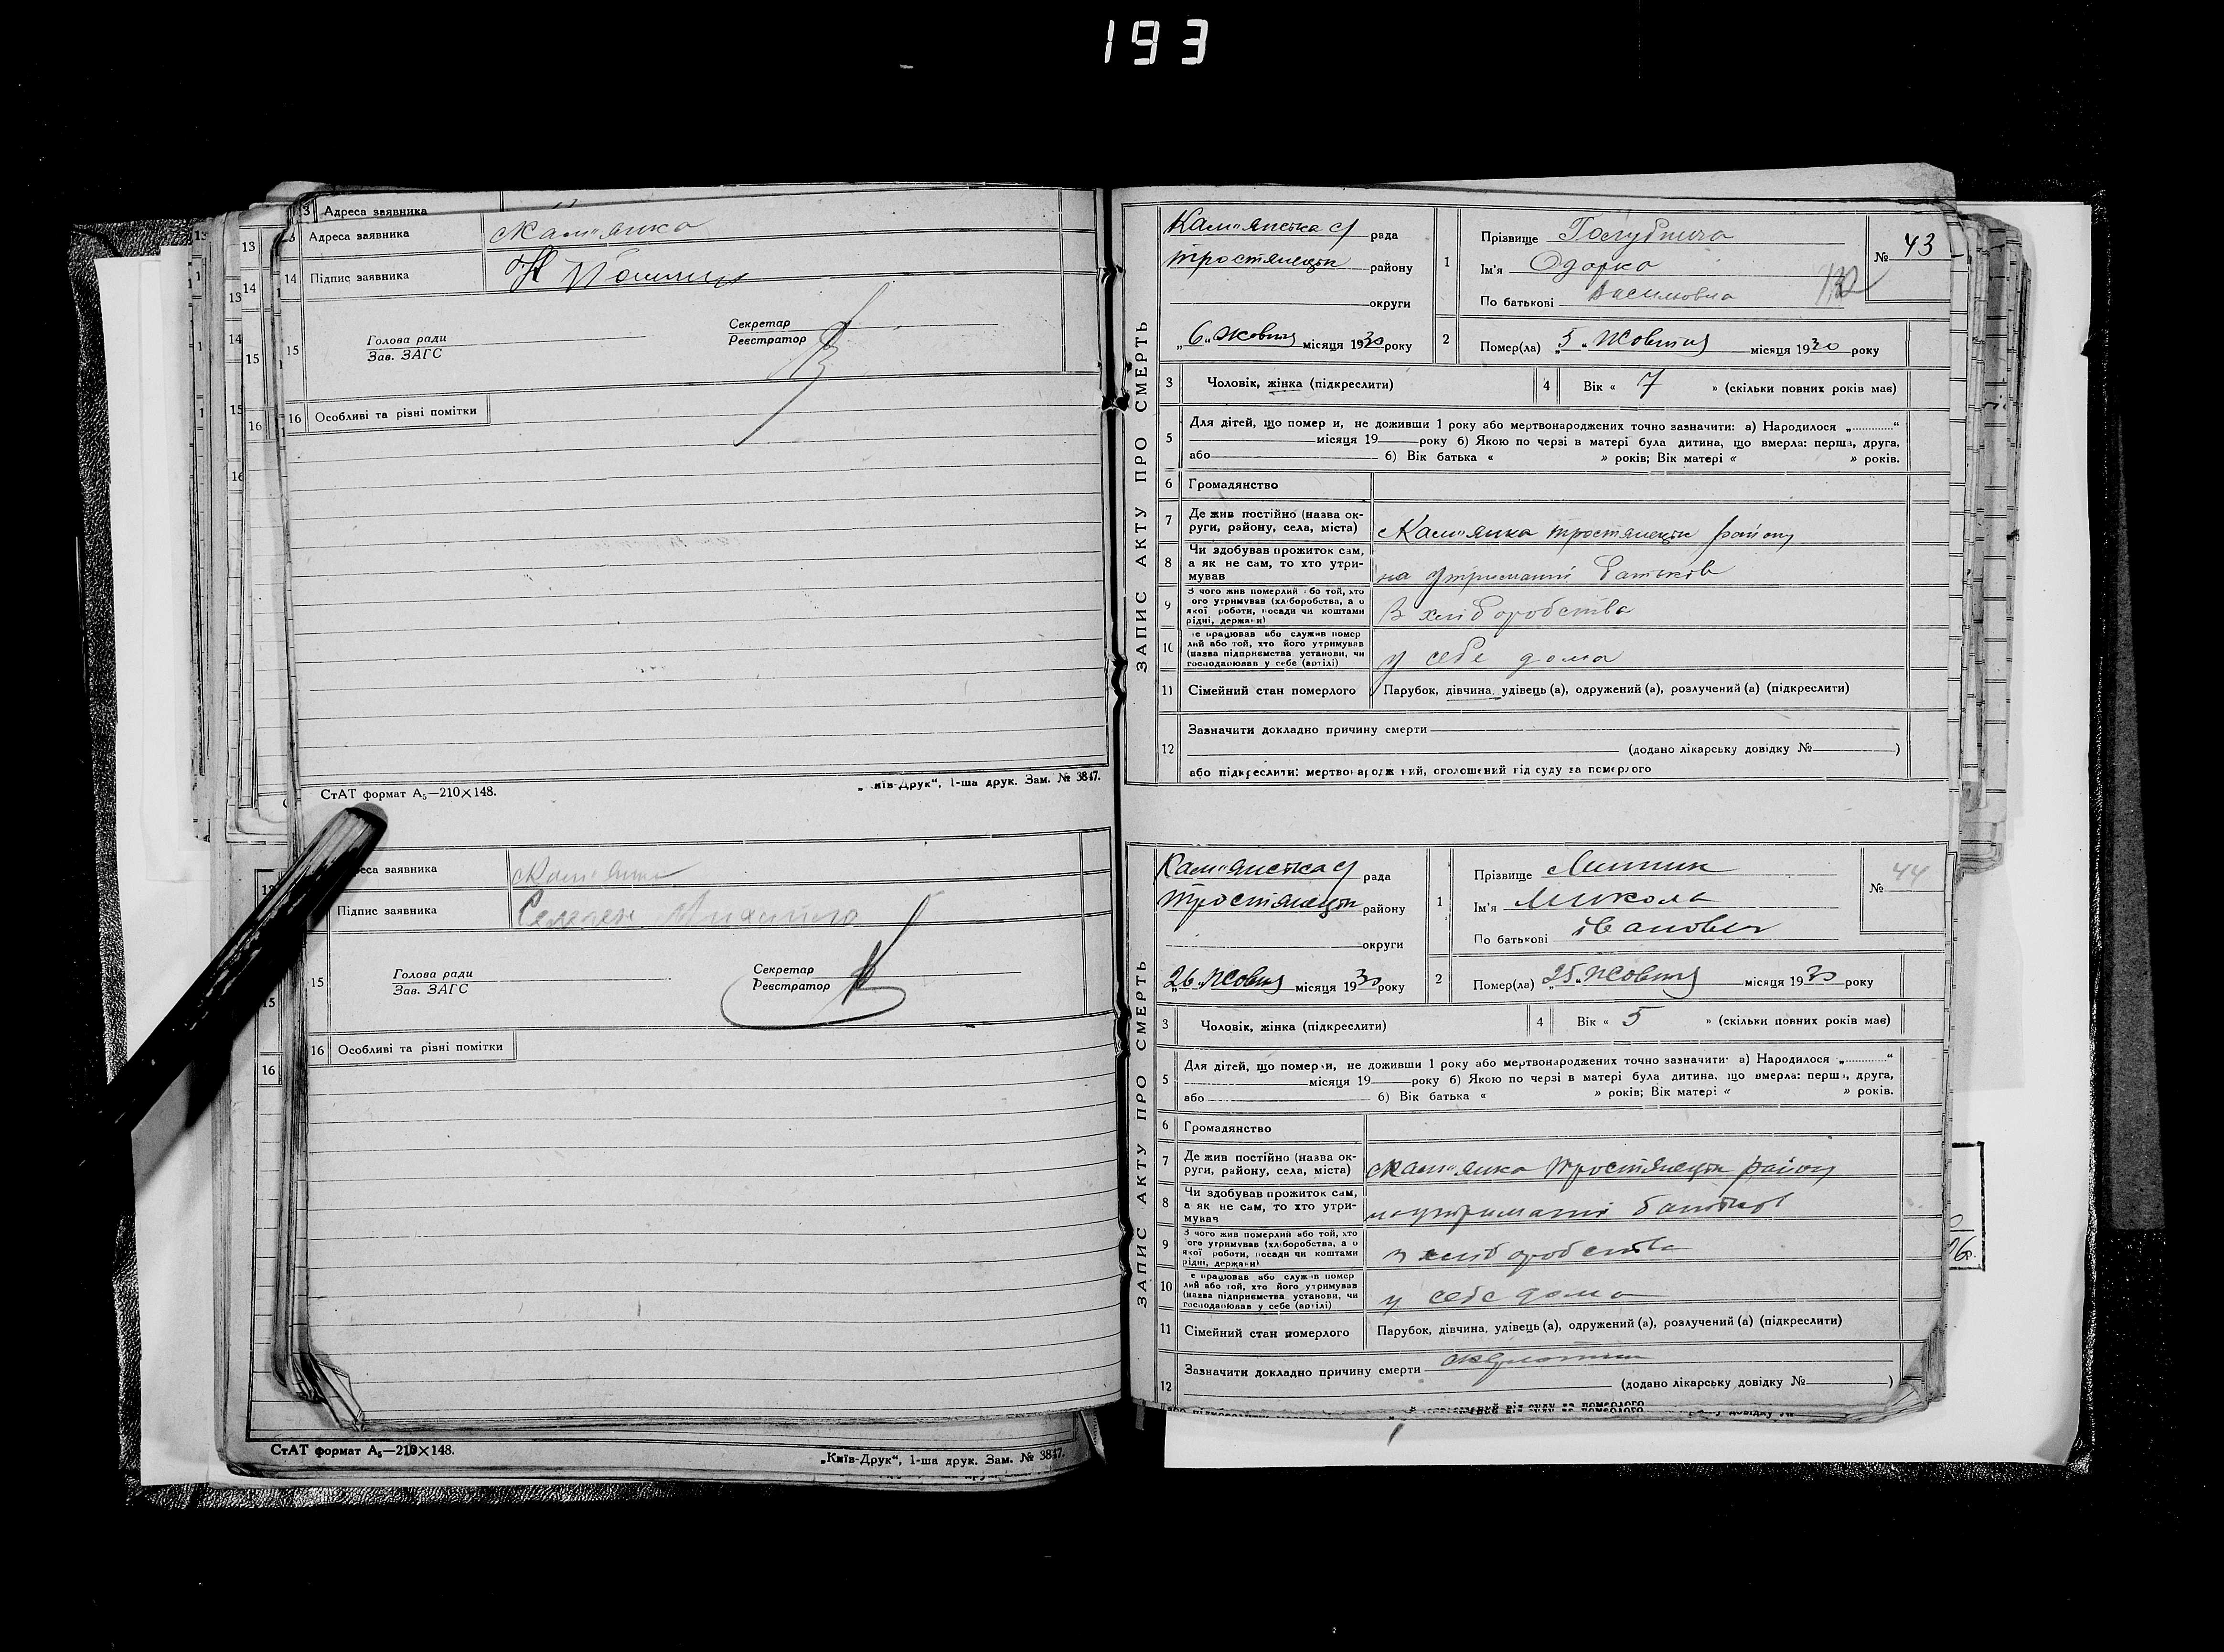 193
13 Адреса заявника
Адреса заявника Кам"янка
14 Підпис заявника
15 Голова ради
Зав. ЗАГС
Секретар
Реєстратор
16 Особливі та різні помітки
СтАТ формат А₅—210×148.
"Київ-Друк", 1-ша друк. Зам. № 3847.
Адреса заявника Кам"янка
Підпис заявника
15 Голова ради
Зав. ЗАГС
Секретар
Реєстратор
16 Особливі та різні помітки
СтАТ формат А₅—210×148.
„Київ-Друк", 1-ша друк. Зам. № 3847.
ЗАПИС АКТУ ПРО СМЕРТЬ
Кам"янська с/ рада
Тростянецьк району
округи
„6" Жовтня місяця 1930 року
1 Прізвище Голубнича
Ім'я Одарка
По батькові Василювна
№ 43
132
2 Помер(ла) „5" Жовтня місяця 1930 року
3 Чоловік, жінка (підкреслити)
4 Вік « 7 » (скільки повних років має)
5 Для дітей, що померли, не доживши 1 року або мертвонароджених точно зазначити: а) Народилося „............"
місяця 19 року б) Якою по черзі в матері була дитина, що вмерла: перша, друга,
або б) Вік батька « » років; Вік матері « » років.
6 Громадянство
7 Де жив постійно (назва округи, району, села, міста) Кам"янка тростянецьк району
8 Чи здобував прожиток сам, а як не сам, то хто утримував на утриманні батьків
9 З чого жив померлий або той, хто його утримував (хліборобства, з якої роботи, посади чи коштами рідні, держави) З хліборобства
10 Де працював або служив померлий або той, хто його утримував (назва підприємства установи, чи господарював у себе (артілі) у себе дома
11 Сімейний стан померлого Парубок, дівчина, удівець (а), одружений (а), розлучений (а) (підкреслити)
12 Зазначити докладно причину смерти
(додано лікарську довідку № )
або підкреслити: мертвонароджений, оголошений від суду за померлого
ЗАПИС АКТУ ПРО СМЕРТЬ
Кам"янська с/ рада
Тростянецьк району
округи
„26" Жовтня місяця 1930 року
1 Прізвище
Ім'я Микола
По батькові Іванович
№ 44
2 Помер(ла) „25" Жовтня місяця 1930 року
3 Чоловік, жінка (підкреслити)
4 Вік « 5 » (скільки повних років має)
5 Для дітей, що померли, не доживши 1 року або мертвонароджених точно зазначити: а) Народилося „............"
місяця 19 року б) Якою по черзі в матері була дитина, що вмерла: перша, друга,
або б) Вік батька « » років; Вік матері « » років.
6 Громадянство
7 Де жив постійно (назва округи, району, села, міста) Кам"янка Тростянецьк району
8 Чи здобував прожиток сам, а як не сам, то хто утримував на утриманні батьків
9 З чого жив померлий або той, хто його утримував (хліборобства, з якої роботи, посади чи коштами рідні, держави) з хліборобства
10 Де працював або служив померлий або той, хто його утримував (назва підприємства установи, чи господарював у себе (артілі) у себе дома
11 Сімейний стан померлого Парубок, дівчина, удівець (а), одружений (а), розлучений (а) (підкреслити)
12 Зазначити докладно причину смерти
(додано лікарську довідку № )